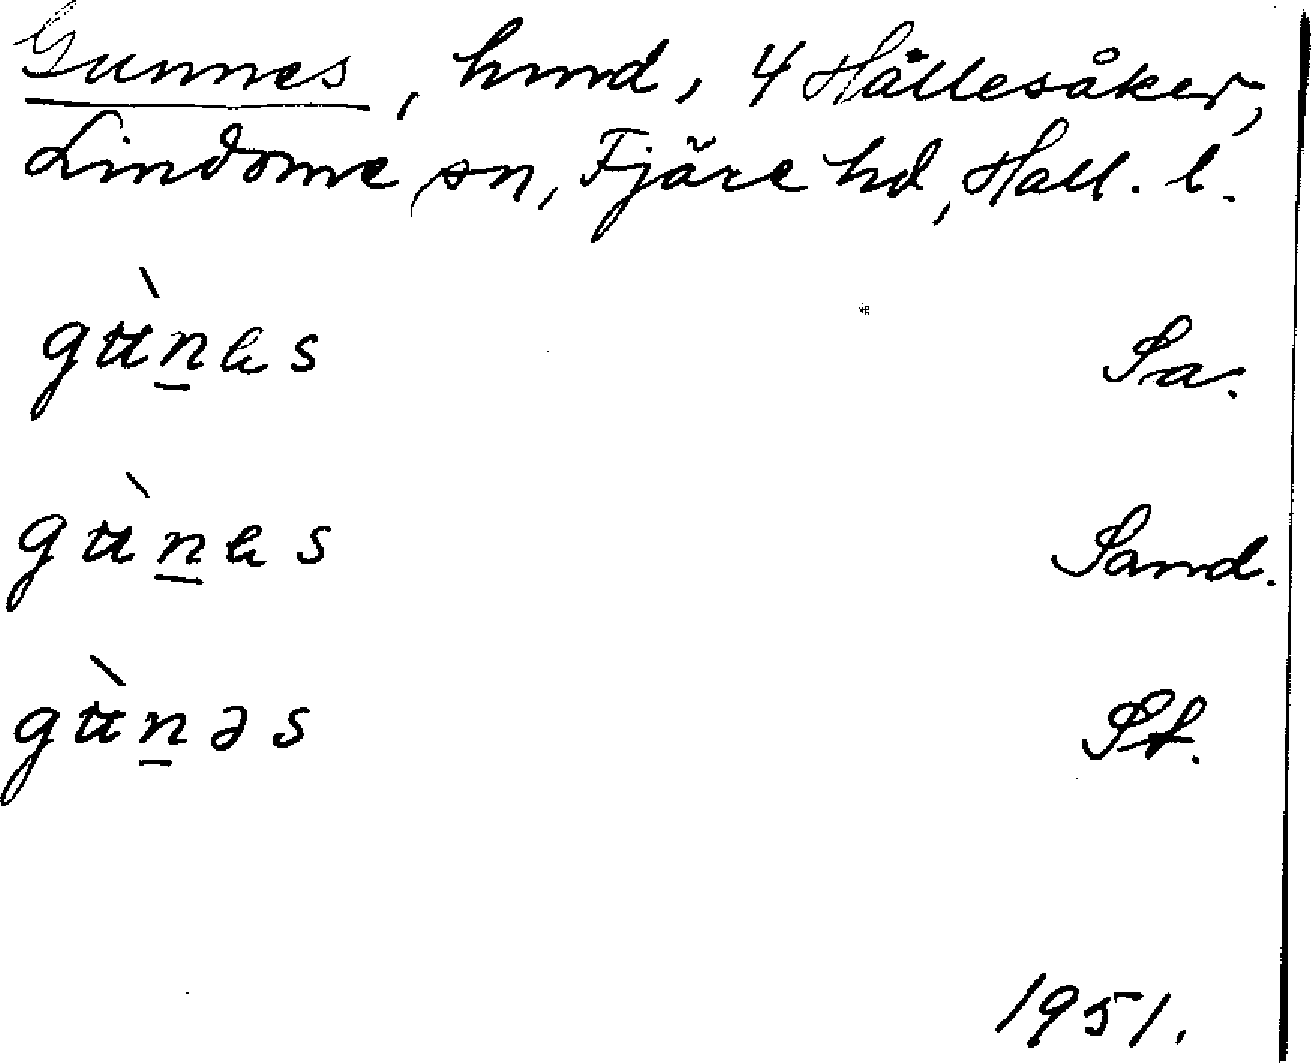 Gunnes, hmd, 4 Hällesåker,
Lindome sn, Fjäre hd, Hall. l.
gʉ̀n̲es Sa.
gʉ̀n̲es Sand.
gʉ̀n̲əs St.
1951.